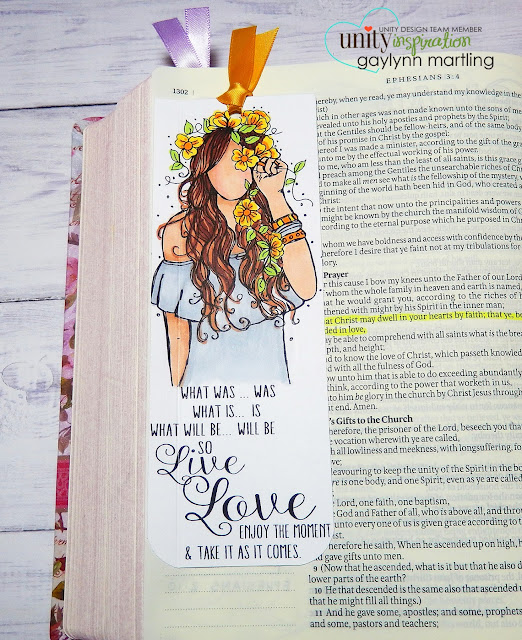 UNITY DESIGN TEAM MEMBER
unity inspiration
gaylynn martling
EPHESIANS 3:4
1302
WHAT WAS ... WAS
WHAT IS... IS
WHAT WILL BE... WILL BE
SO
Live
Love
ENJOY THE MOMENT
& TAKE IT AS IT COMES.
hereby, when ye read, ye may understand my knowledge in the
ich in other ages was not made known unto the sons of me
evealed unto his holy apostles and prophets by the Spirit;
t the Gentiles should be fellow-heirs, and of the same body
of his promise in Christ by the gospel:
ereof I was made a minister, according to the gift of the gra
unto me by the effectual working of his power.
to me, who am less than the least of all saints, is this grace g
preach among the Gentiles the unsearchable riches of Chri
d to make all men see what is the fellowship of the mystery, w
ginning of the world hath been hid in God, who created a
hrist:
the intent that now unto the principalities and powers
might be known by the church the manifold wisdom of G
cording to the eternal purpose which he purposed in Chr
whom we have boldness and access with confidence by the
herefore I desire that ye faint not at my tribulations for
lory.
Prayer
r this cause I bow my knees unto the Father of our Lord
whom the whole family in heaven and earth is named,
at he would grant you, according to the riches of h
thened with might by his Spirit in the inner man;
at Christ may dwell in your hearts by faith; that ye, be
ded in love,
ay be able to comprehend with all saints what is the brea
epth, and height;
d to know the love of Christ, which passeth knowled
with all the fulness of God.
ow unto him that is able to do exceeding abundantly
think, according to the power that worketh in us,
to him be glory in the church by Christ Jesus through
t end. Amen.
's Gifts to the Church
herefore, the prisoner of the Lord, beseech you that
e vocation wherewith ye are called,
h all lowliness and meekness, with longsuffering, fo
ve;
eavouring to keep the unity of the Spirit in the bo
re is one body, and one Spirit, even as ye are called
Lord, one faith, one baptism,
God and Father of all, who is above all, and throu
unto every one of us is given grace according to t
ist.
herefore he saith, When he ascended up on high, h
d gave gifts unto men.
9 (Now that he ascended, what is it but that he also d
lower parts of the earth?
10 He that descended is the same also that ascended u
that he might fill all things.)
11 And he gave some, apostles; and some, prophets
and some, pastors and teachers;